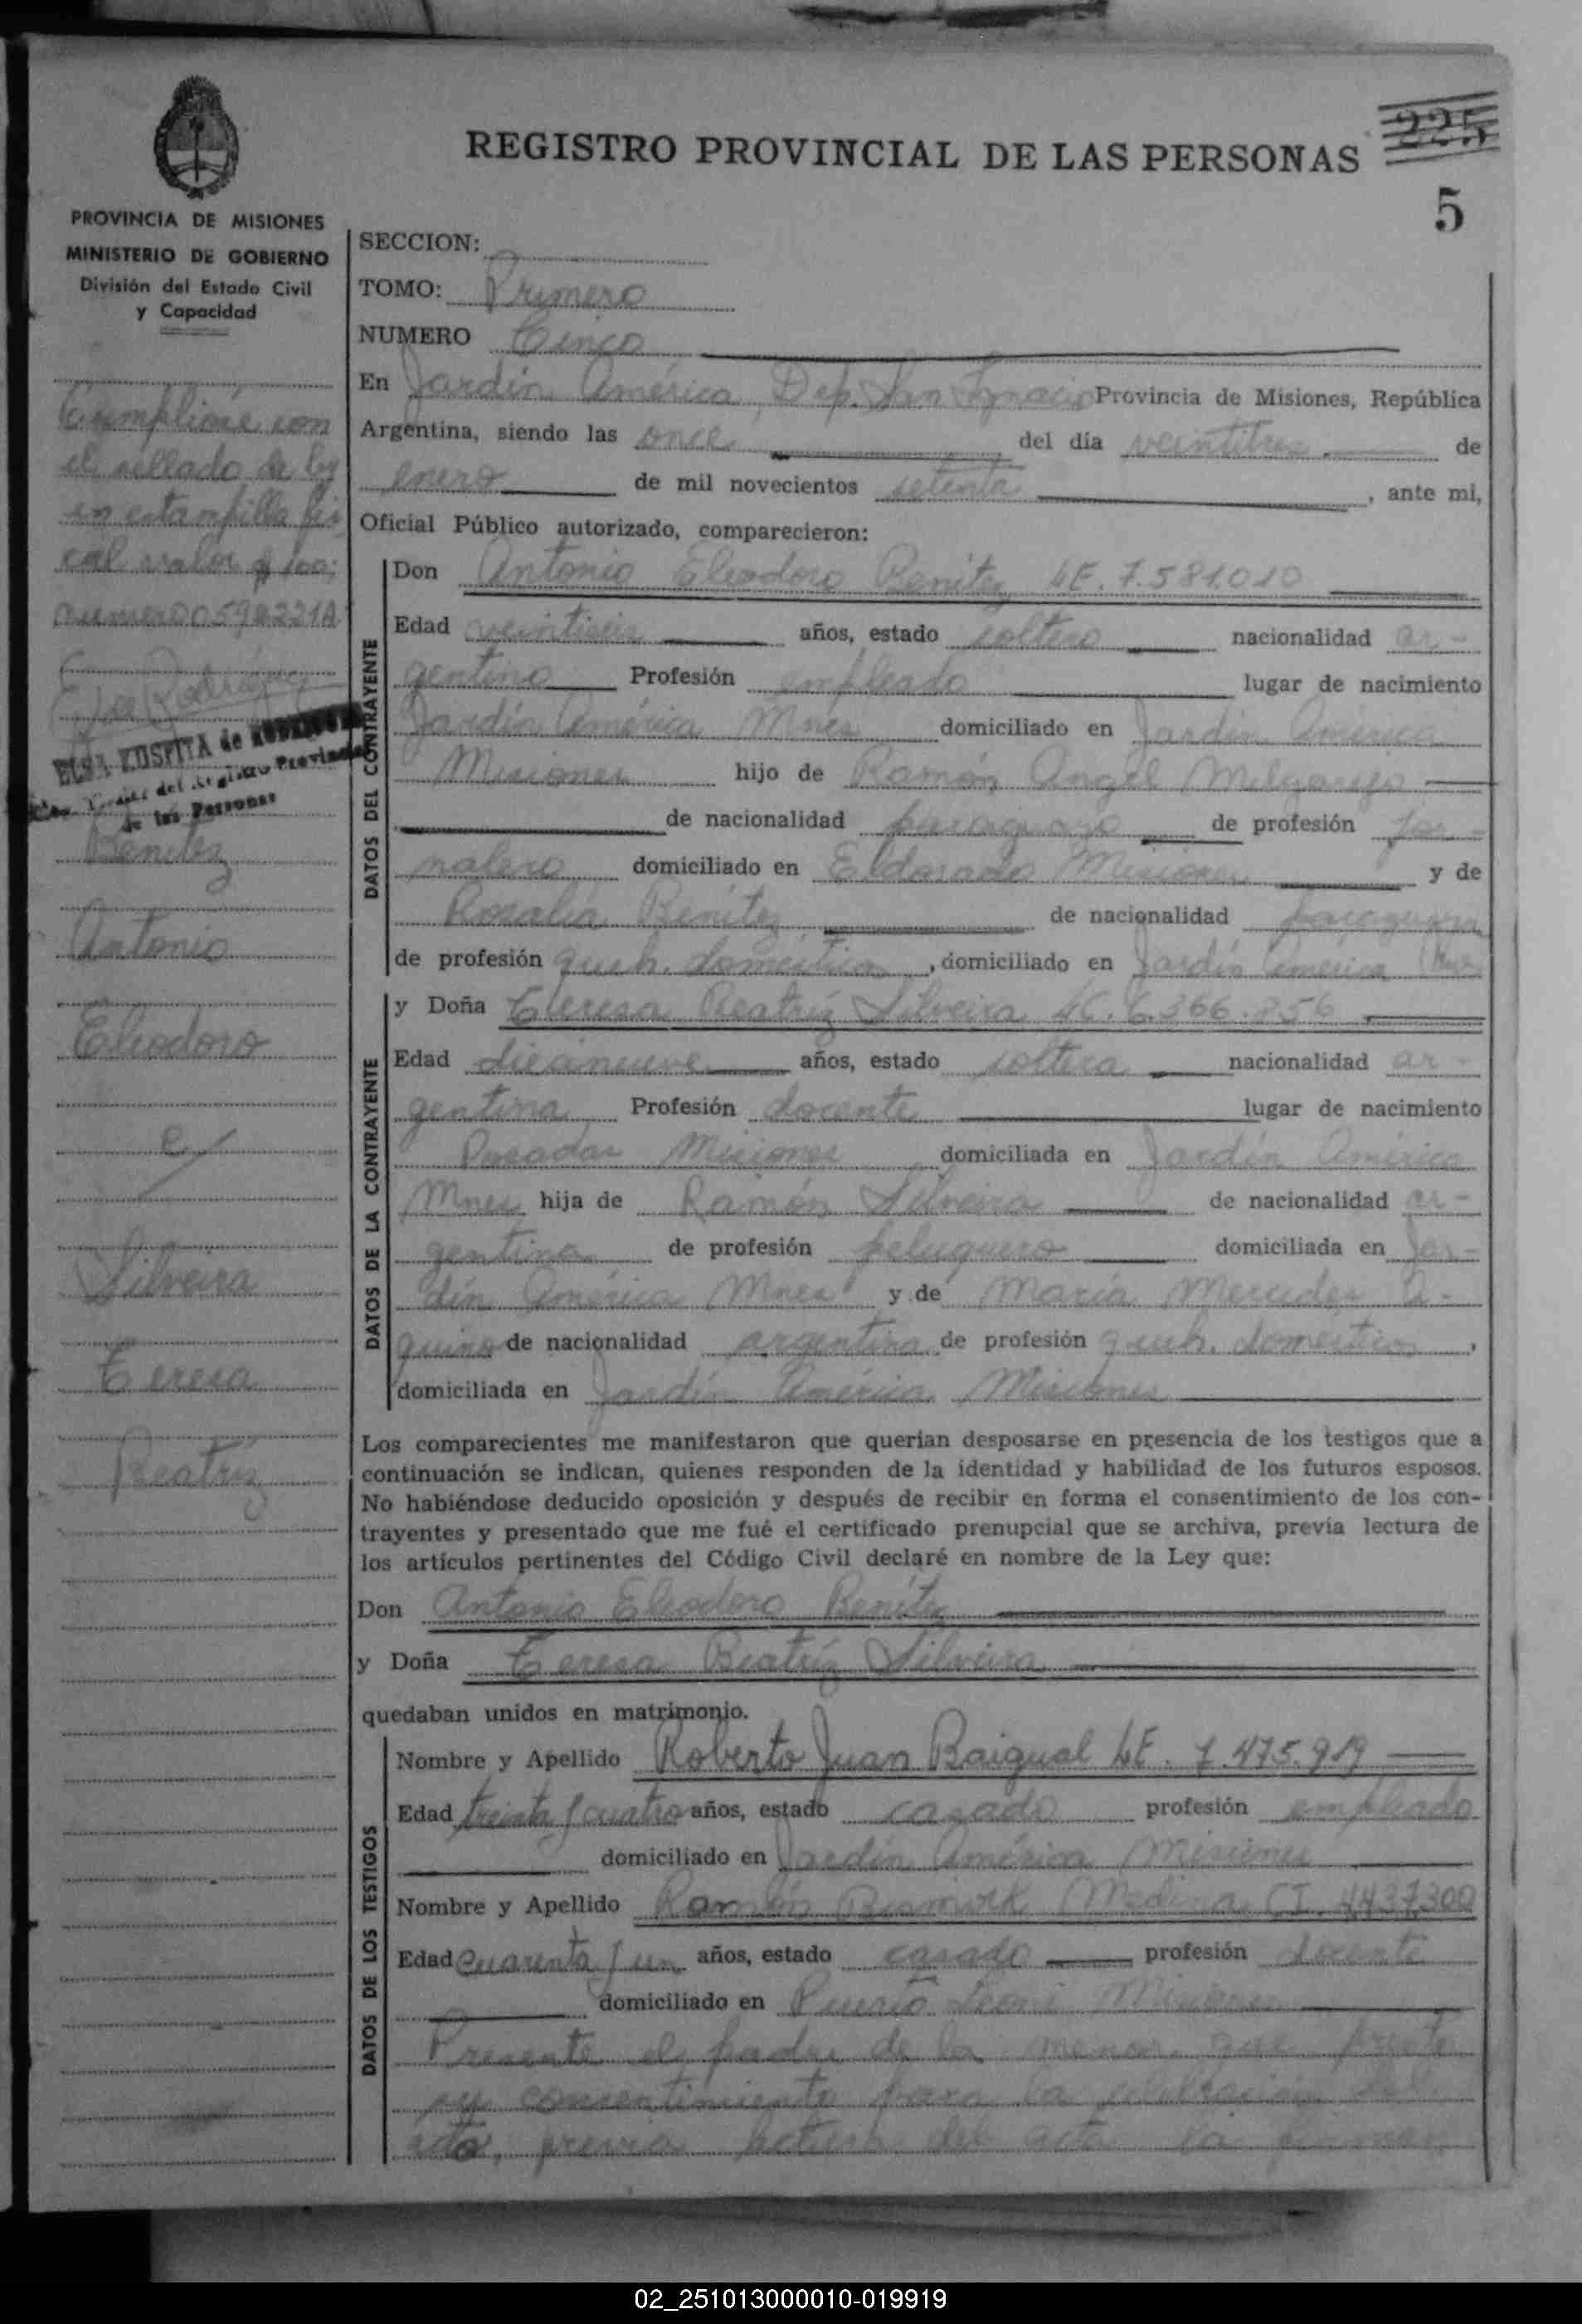 REGISTRO PROVINCIAL DE LAS PERSONAS
225
5
PROVINCIA DE MISIONES
MINISTERIO DE GOBIERNO
División del Estado Civil
y Capacidad
Cumplióse con
el sellado de ley
en estampilla fis
cal valor $ 100;
numero 0598221A
Elsa Rodríguez
ELSA KUSPITA de
del Registro Provincial
de las Personas
Benitez
Antonio
Eleodoro
y
Silveira
Teresa
Beatríz
SECCION:
TOMO: Primero
NUMERO Cinco
En Jardín América, Dep. San Ignacio Provincia de Misiones, República
Argentina, siendo las once del día veintitres de
enero de mil novecientos setenta, ante mi,
Oficial Público autorizado, comparecieron:
DATOS DEL CONTRAYENTE
Don Antonio Eleodoro Benítez LE. 7.581.010
Edad veintiseis años, estado soltero nacionalidad ar-
gentino Profesión empleado lugar de nacimiento
Jardín América Mnes domiciliado en Jardín América
Misiones hijo de Ramón Angel Melgarejo
de nacionalidad paraguayo de profesión jor-
nalero domiciliado en Eldorado Misiones y de
Rosalía Benítez de nacionalidad paraguaya
de profesión queh. domésticos, domiciliado en Jardín América Mnes
DATOS DE LA CONTRAYENTE
y Doña Teresa Beatríz Silveira LC. 6.366.856
Edad diecinueve años, estado soltera nacionalidad ar-
gentina Profesión docente lugar de nacimiento
Posadas Misiones domiciliada en Jardín América
Mnes hija de Ramón Silveira de nacionalidad ar-
gentina de profesión peluquero domiciliada en Jar-
dín América Mnes y de María Mercedes A-
quino de nacionalidad argentina de profesión queh. domésticos,
domiciliada en Jardín América Misiones
Los comparecientes me manifestaron que querían desposarse en presencia de los testigos que a
continuación se indican, quienes responden de la identidad y habilidad de los futuros esposos.
No habiéndose deducido oposición y después de recibir en forma el consentimiento de los con-
trayentes y presentado que me fué el certificado prenupcial que se archiva, previa lectura de
los artículos pertinentes del Código Civil declaré en nombre de la Ley que:
Don Antonio Eleodoro Benítez
y Doña Teresa Beatríz Silveira
quedaban unidos en matrimonio.
DATOS DE LOS TESTIGOS
Nombre y Apellido Roberto Juan Baigual LE. 7.475.919
Edad treinta y cuatro años, estado casado profesión empleado
domiciliado en Jardín América Misiones
Nombre y Apellido Ramón Bismark Medina CI. 4437300
Edad cuarenta y un años, estado casado profesión docente
domiciliado en Puerto Leoni Misiones
Presente el padre de la menor que presta
su consentimiento para la celebración del
acto, previa lectura del acta la firman
02_251013000010-019919